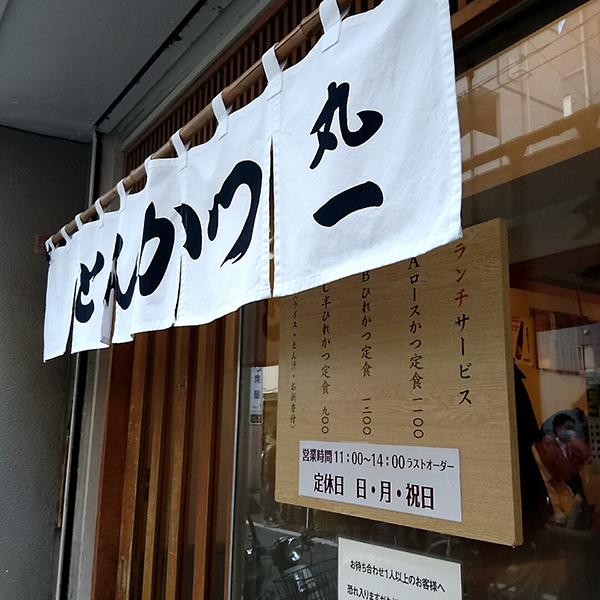 とんかつ
丸一
ランチサービス
Aロースかつ定食 一一〇〇
Bひれかつ定食 一二〇〇
C半ひれかつ定食 九〇〇
(ライス・とん汁・お新香付)
営業時間11:00~14:00ラストオーダー
定休日 日・月・祝日
お待ち合わせ1人以上のお客様へ